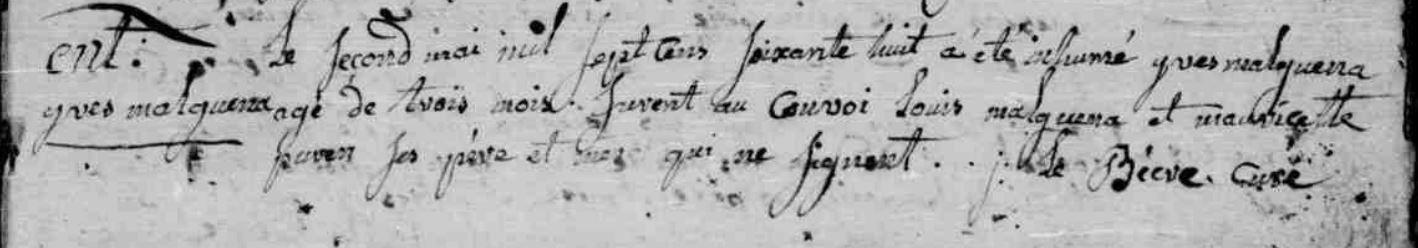 ent: Le second mai mil sept cens soixante huit a été inhumé yves malquena
yves malquena agé de trois mois. furent au convoi Louis malquena et mauricette
puren ses pére et mere qui ne signent. . Le Biévre. curé